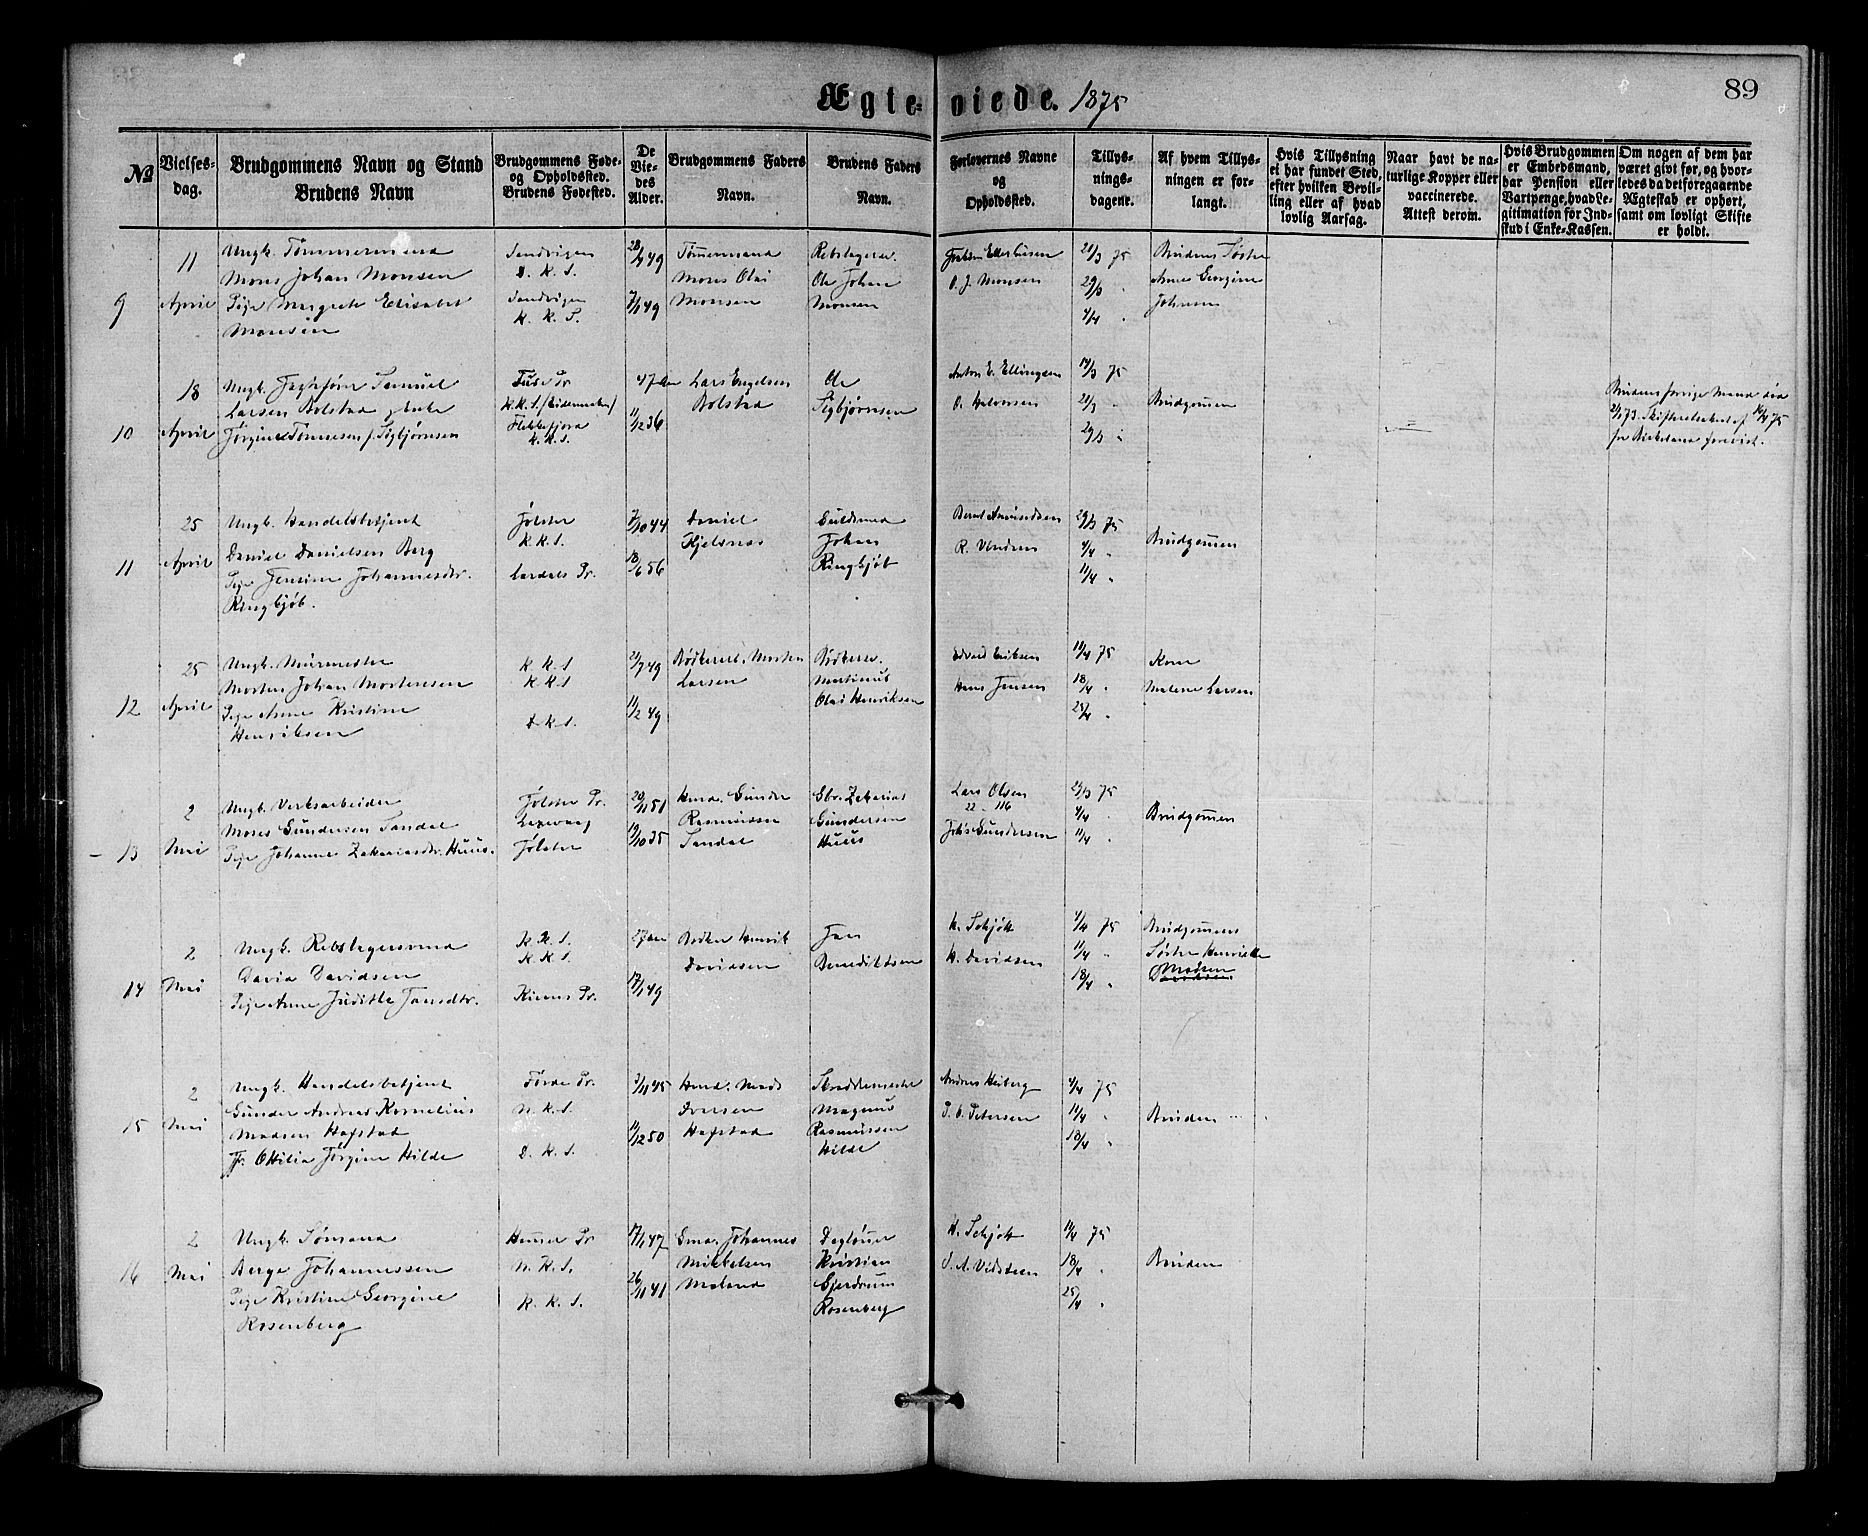 89
Ægte-viede. 1875
No
Vielses-
dag.
Brudgommens Navn og Stand
Brudens Navn
Brudgommens Føde-
og Opholdssted.
Brudens Fødested.
De
Vie-
des
Alder.
Brudgommens Faders
Navn.
Brudens Faders
Navn.
Forlovernes Navne
og
Opholdssted.
Tillys-
nings-
dagene.
Af hvem Tillys-
ningen er for-
langt.
Hvis Tillysning
ei har fundet Sted,
efter hvilken Bevil-
ling eller af hvad
lovlig Aarsag.
Naar havt de na-
turlige Kopper eller
vaccinerede.
Attest derom.
Hvis Brudgommen
er Embedsmand,
har Pension eller
Vartpenge, hvad Le-
gitimation for Ind-
skud i Enke-Kassen.
Om nogen af dem har
været givt før, og hvor-
ledes da det foregaaende
Ægteskab er ophørt,
samt om lovligt Skifte
er holdt.
9
11
April
Ungk. Tømmermand
Mons Johan Monsen
Pige Margrete Elisabet
Monsen
Sandvigen
D. K. S.
Sandvigen
K. K. S.
28/4 49
7/1 49
Tømermand
Mons Olai
Monsen
Rebslagersv.
Ole Johan
Monsen
O. J. Monsen
21/3 75
29/3 "
4/4 "
Brudens Søster
Anne Georgine
Johnsen
10
18
April
Larsen Bolstad
Jørgine Tønnesen f. Sigbjørnsen
K. K. S.
Flekkefjord
K. K. S.
47 Aar
11/12 36
Lars Engelsen
Bolstad
Ole
Sigbjørnsen
Anton E. Ellingsen
O. Halvorsen
14/3 75
21/3 "
29/3 "
Brudgommen
Brudens forrige Mand død
11
25
April
Ungk. Handelsbetjent
Daniel Danielsen Berg
Pige Jensine Johannesdtr.
Ringkjøb.
Jølster
K. K. S.
Lærdals Pr.
7/10 44
18/6 56
Daniel
Kjelsnæs
Guldsmed
Johan
Ringkjøb
Bernt Amundsen
29/3 75
4/4 "
11/4 "
Brudgommen
12
25
April
Ungk. Murmester
Morten Johan Mortensen
Pige Anne Kristine
Henriksen
K. K. S
K. K. S
D. K. S.
21/7 49
11/2 49
Bødkersv. Morten
Larsen
Bødkersv.
Martinus
Olai Henriksen
Edvard Eriksen
Hans Jensen
11/4 75
18/4 "
25/4 "
Kone
Malene Larsen
13
2
Mai
Ungk. Verksarbeider
Moses Gundersen Sandal
Pige Johanne Zakariasdtr. Huus.
Jølster Pr.
Laxevaag
Jølster
20/11 51
19/10 35
Husm. Gunder
Rasmussen
Sandal
Gbr. Zakarias
Gundersen
Huus
Lars Olsen
22 - 116
Johs Gundersen
29/3 75
4/4 "
11/4 "
Brudgommen
14
2
Mai
Ungk. Rebslagersvend
David Davidsen
Pige Anne Judithe Jansdtr.
K. K. S.
K. K. S.
Kinns Pr.
27 Aar
17/1 49
Bødker Henrik
Davidsen
Jan
Benediktsen
H. Schjøtt
H. Davidsen
4/4 75
11/4 "
18/4 "
Brudgommens
Søster Henriette
Madsen
15
2
Mai
Ungk. Handelsbetjent
Gunder Andreas Kornelius
Madsen Hafstad
Fr. Ottilia Jørgine Hilde
Førde Pr.
N. K. S.
D. K. S.
3/11 45
11/12 50
Husm. Mads
Iversen
Hafstad
Skræddermester
Magnus
Rasmussen
Hilde
Andreas Heiberg
P. C. Petersen
4/4 75
11/4 "
18/4 "
Bruden
16
2
Mai
Ungk. Sømand
Børge Johannessen
Pige Kristine Georgine
Rosenberg
N. K. S.
K. K. S.
17/1 47
26/11 41
Gmd. Johannes
Mikkelsen
Maland
Dagløner
Kristian
Gjerdrum
Rosenberg
H. Schjøtt
S. A. Vidsteen
11/4 75
18/4 "
25/4 "
Bruden